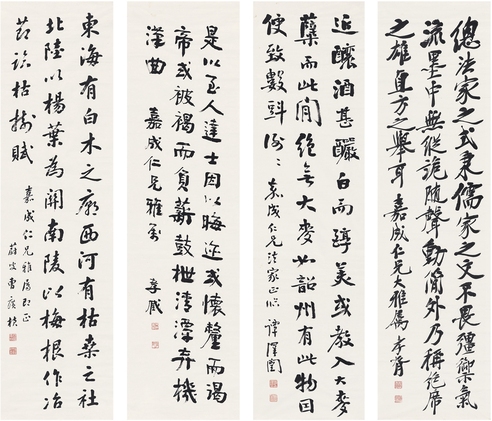 總法家之式秉儒家之文不畏彊禦氣
流墨中無縱詭隨聲動簡外乃稱絕席
之雄直方之舉耳 嘉成仁兄大雅屬
近釀酒甚釅白而醇美或教入大麥
蘖而此間絕無大麥如韶州有此物因
便致數㪷
嘉成仁兄法家正 譚澤闓
是以至人達士因以晦迹或懷釐而謁
帝或被褐而負薪鼓枻清潭弃機
漢曲 嘉成仁兄雅
東海有白木之廟西河有枯桑之社
北陸以楊葉為關南陵以梅根作冶
節錄枯樹賦
嘉成仁兄雅屬即正